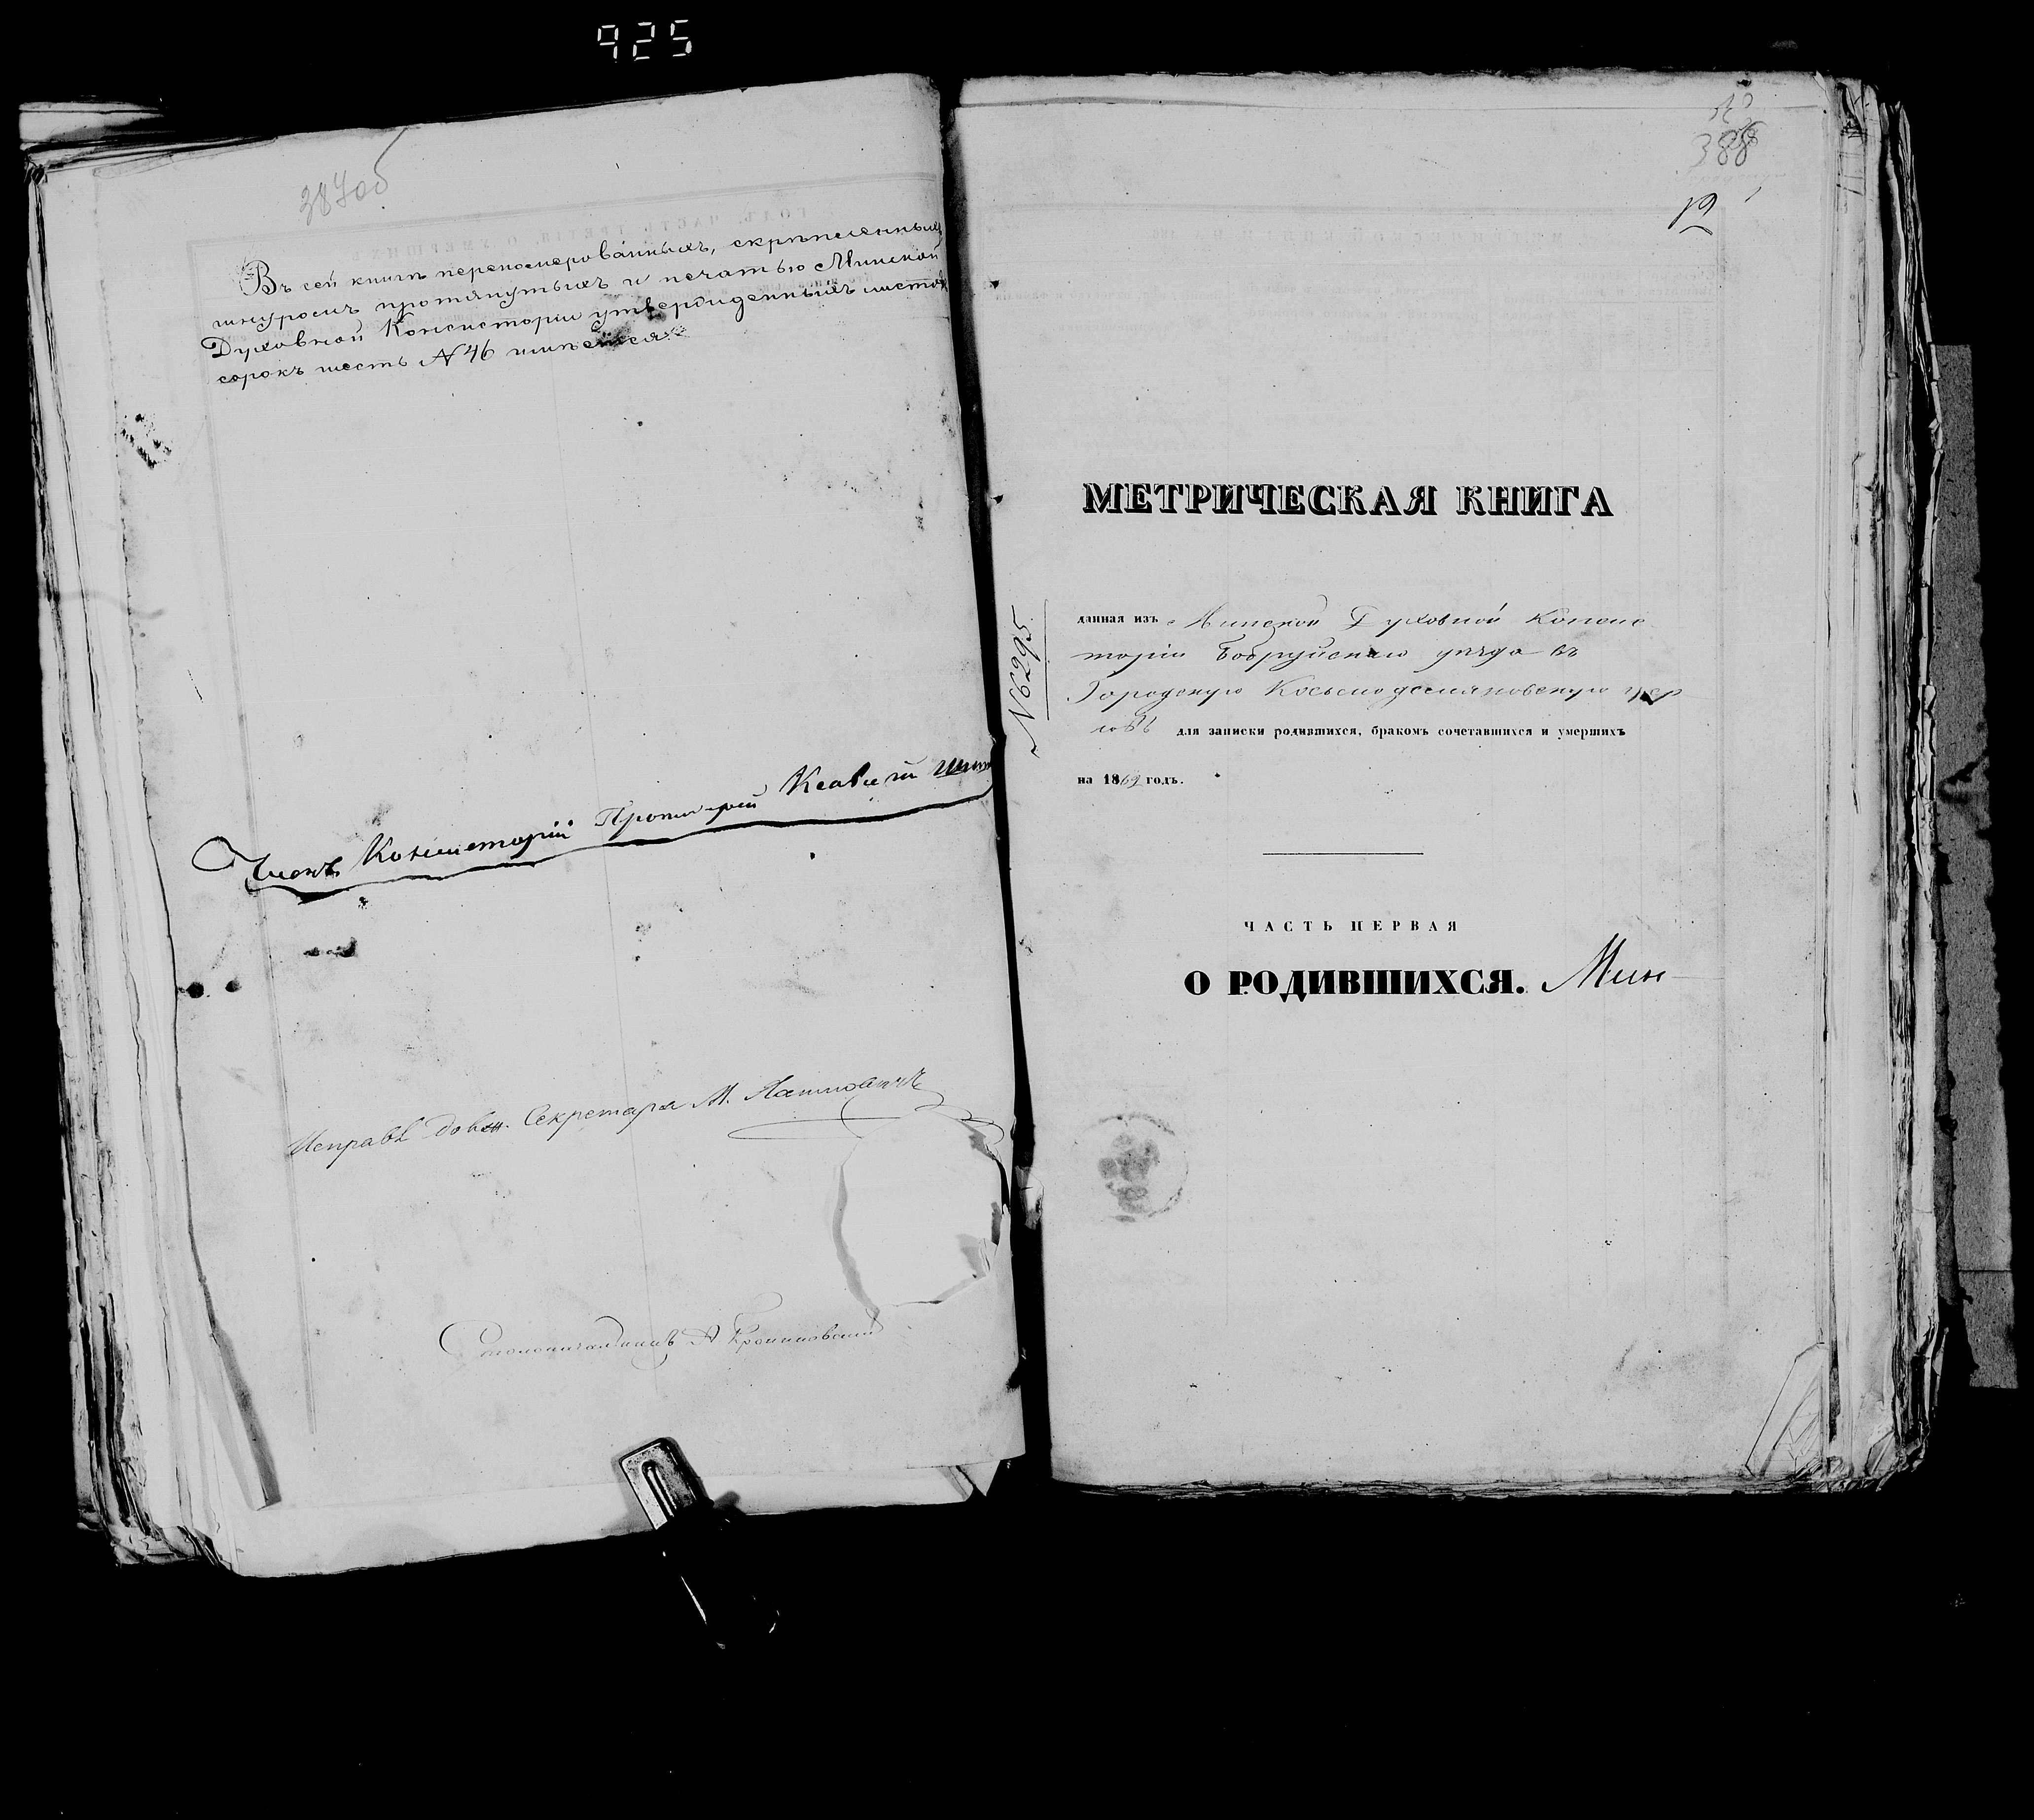 925
387об
Въ сей книгѣ переномерованныхъ, скрѣпленныхъ
шнуромъ протянутыхъ и печатью Минской
Духовной Консисторіи утвержденныхъ листовъ
сорокъ шесть №46 имѣется
Членъ Консисторіи Протоіерей
Исправл. долж. Секретаря М.
Столоначальникъ А
388
19
МЕТРИЧЕСКАЯ КНИГА
№6295.
данная изъ Минской Духовной Консис
торіи Бобруйскаго уѣзда въ
Городскую Косьмодаміановскую цер
ковь для записки родившихся, бракомъ сочетавшихся и умершихъ
на 1869 годъ.
ЧАСТЬ ПЕРВАЯ
О РОДИВШИХСЯ. Мин